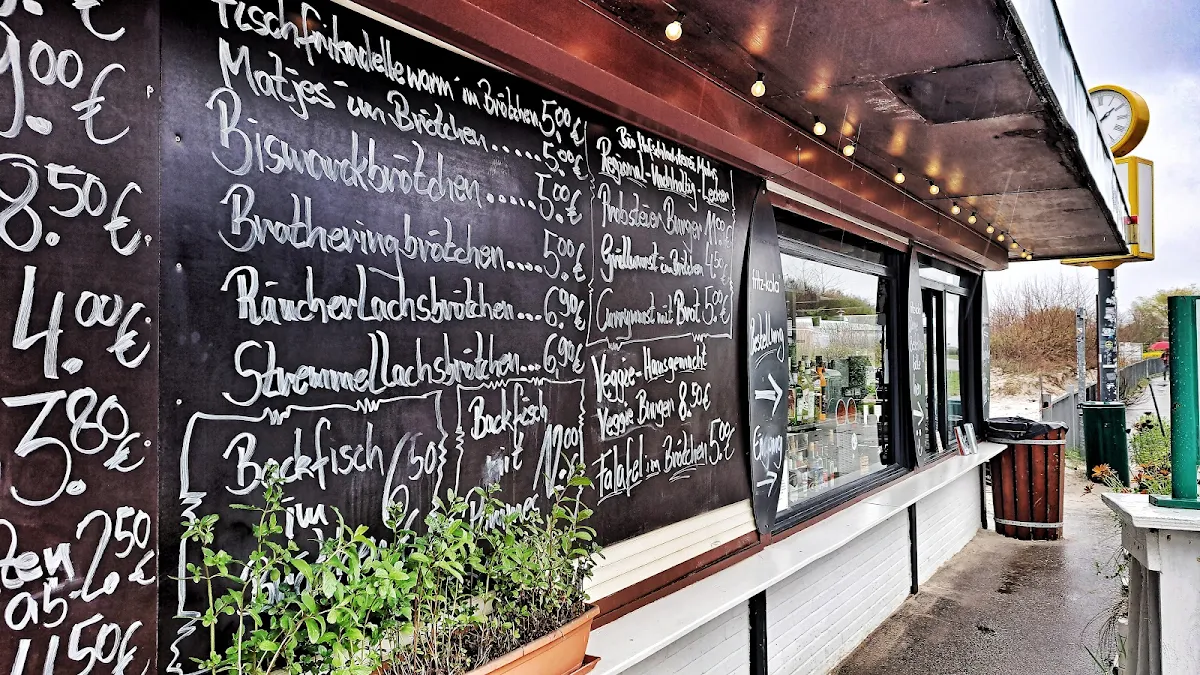 9.00€
8.50€
4.00€
3.80€
2.50€
ab
11.50€
Fischfrikadelle warm im Brötchen 5.00€
Matjes im Brötchen..... 5.00€
Bismarckbrötchen..... 5.00€
Bratheringbrötchen.... 5.00€
Räucherlachsbrötchen... 6.90€
Stremmellachsbrötchen... 6.90€
Backfisch 6.50
im
Backfisch
mit 12.00
Pommes
Regional-Nachhaltig-Lecker
Probsteier Burger 11.00€
Grillwurst im Brötchen 4.50€
Currywurst mit Brot 5.00€
Veggie-Hausgemacht
Veggie Burger 8.50€
Falafel im Brötchen 5.00€
fritz-kola
Bestellung
Eingang